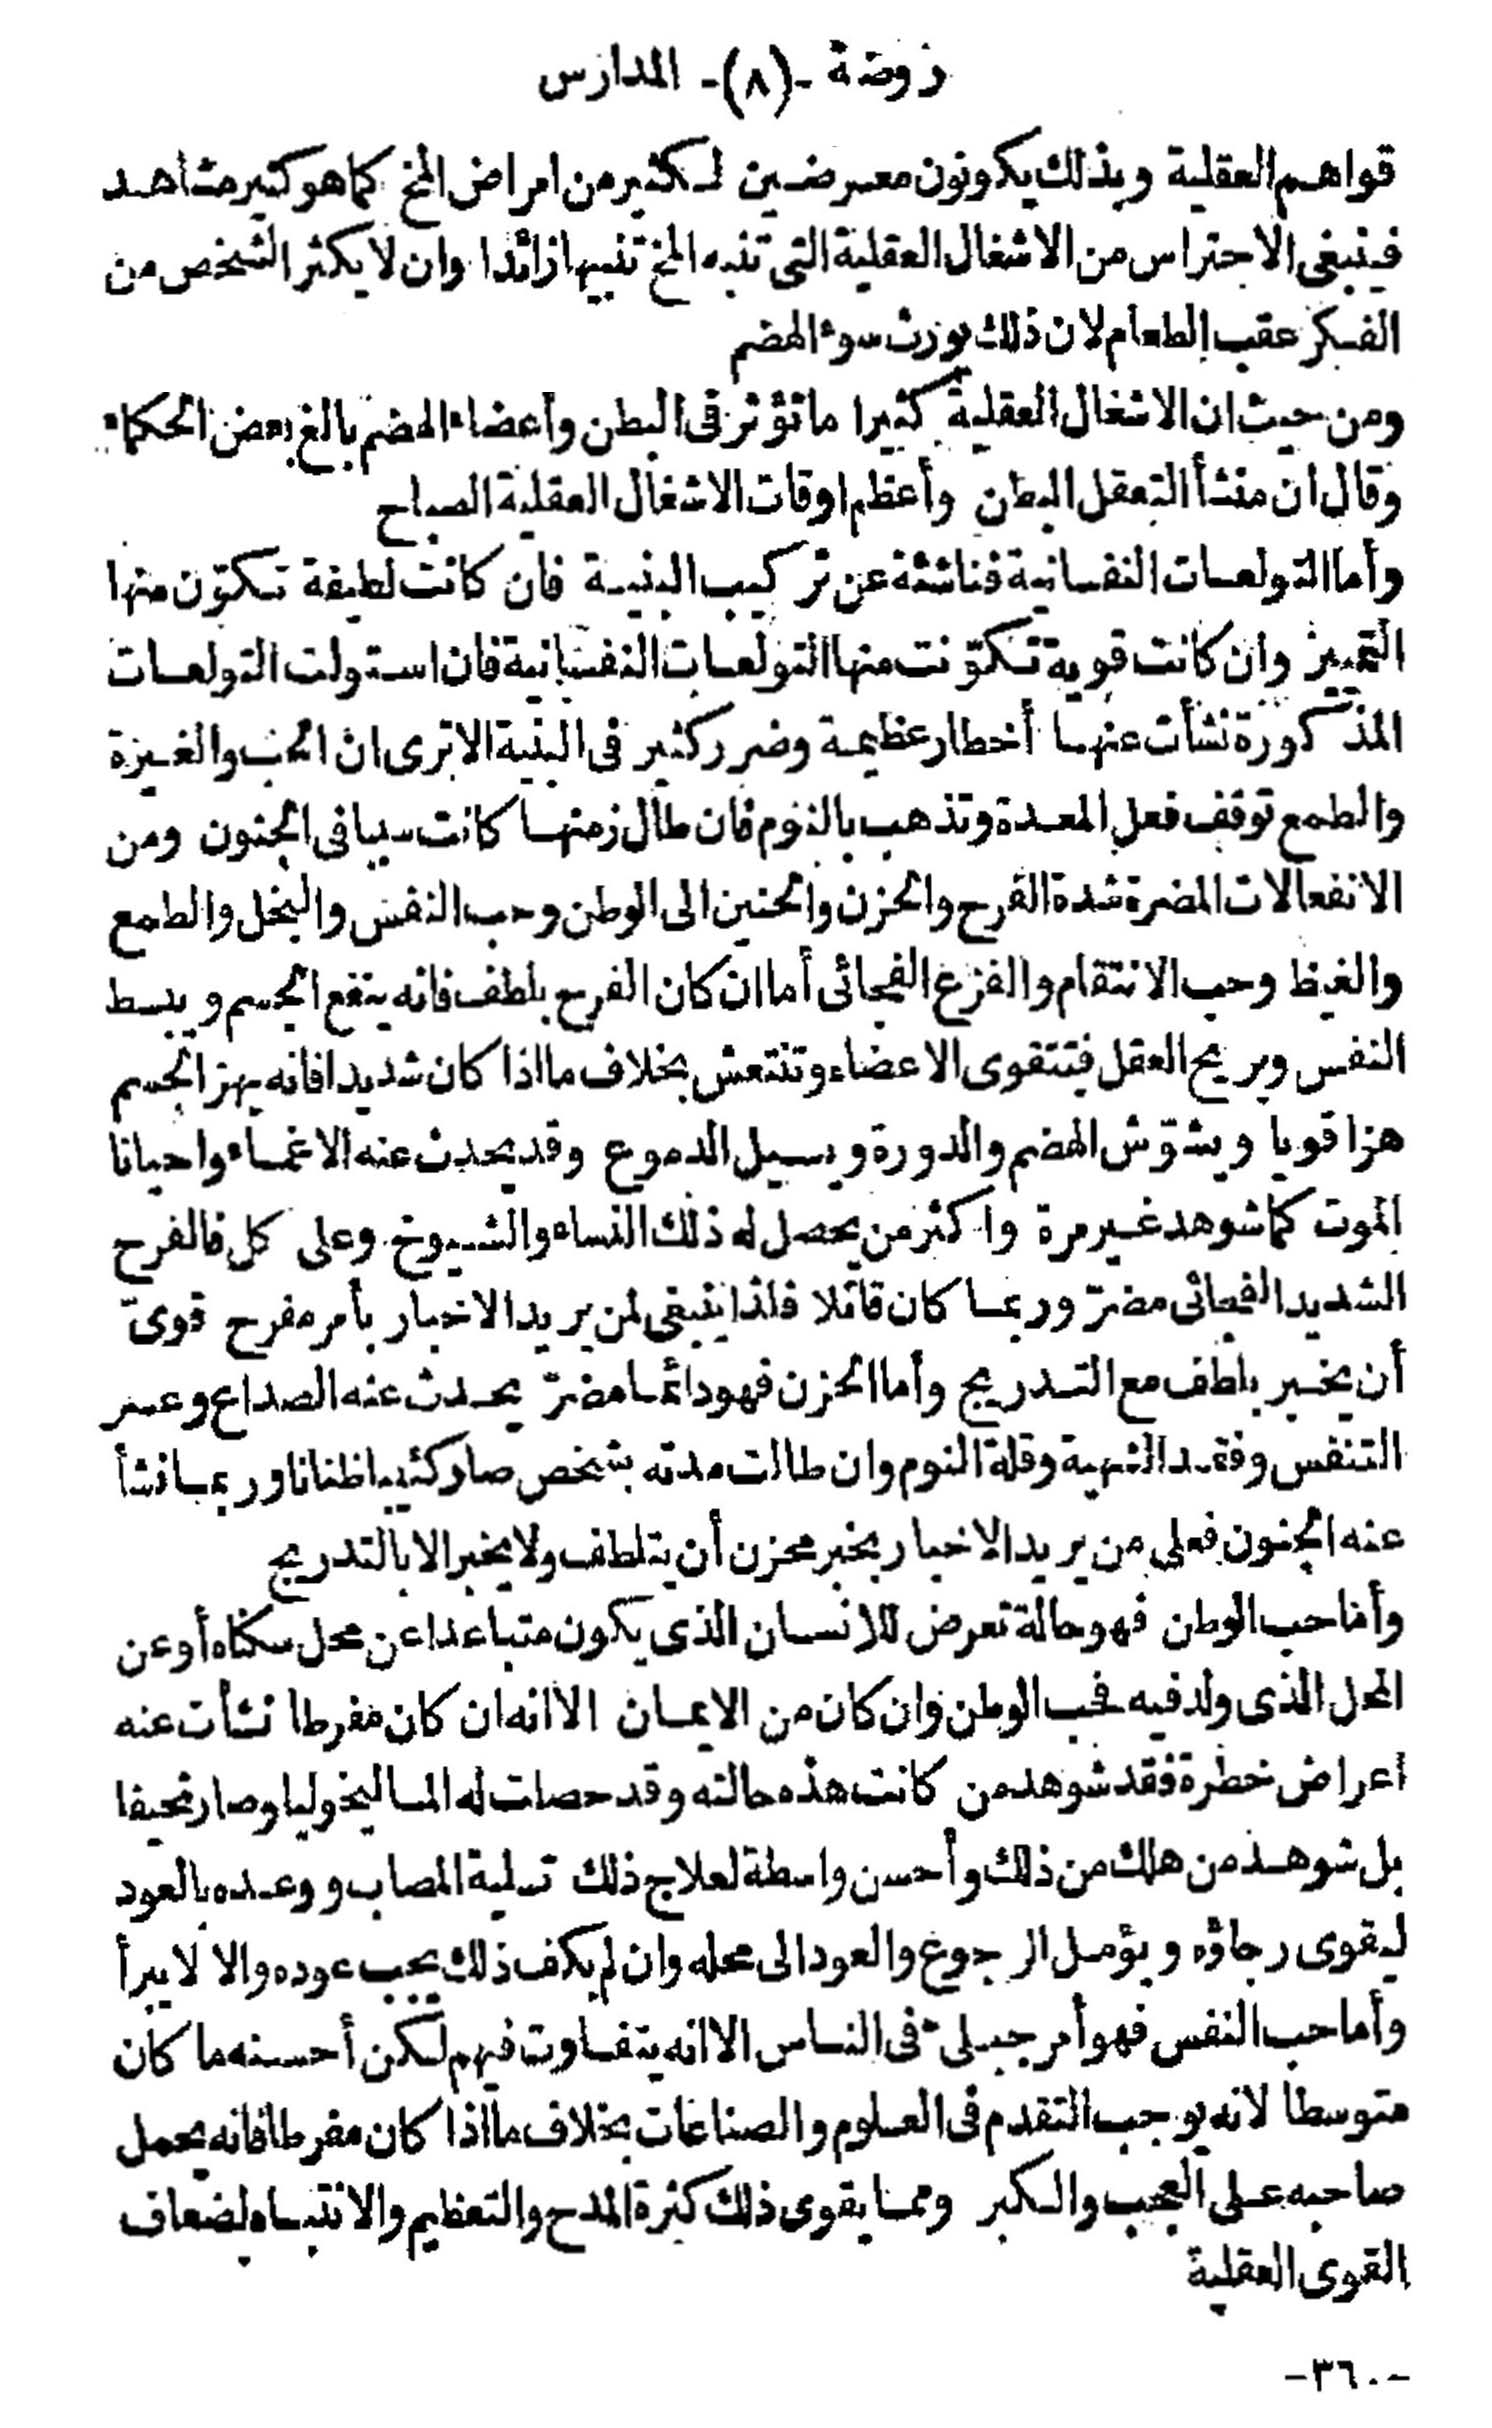 روضة -(٨)- المدارس
قواهم العقلية وبذلك يكونون معرضين لكثير من امراض المخ كما هو كثير مشاهد
فينبغى الاحتراس من الاشغال العقلية التى تنبه المخ تنبيها زائدا وان لا يكثر الشخص من
الفكر عقب الطعام لان ذلك يورث سوء الهضم
ومن حيث ان الاشغال العقلية كثيرا ما تؤثر فى البطن وأعضاء الهضم بالغ بعض الحكماء
وقال ان منشأ التعقل البطن وأعظم اوقات الاشغال العقلية الصباح
وأما التولعات النفسانية فناشئة عن تركيب البنية فان كانت لطيفة تكوّن منها
التمييز وان كانت قوية تكوّنت منها التولعات النفسانية فان استولت التولعات
المذكورة نشأت عنها أخطار عظيمة وضرر كثير فى البنية الا ترى ان الحب والغيرة
والطمع توقف فعل المعدة وتذهب بالنوم فان طال زمنها كانت سببا فى الجنون ومن
الانفعالات المضرة شدة الفرح والحزن والحنين الى الوطن وحب النفس والبخل والطمع
والغيظ وحب الانتقام والفزع الفجائى أما ان كان الفرح بلطف فانه ينفع الجسم ويبسط
النفس ويريح العقل فتتقوى الاعضاء وتنتعش بخلاف ما اذا كان شديدا فانه يهز الجسم
هزا قويا ويشوّش الهضم والدورة ويسيل الدموع وقد يحدث عنه الاغماء واحيانا
الموت كما شوهد غير مرة واكثر من يحصل له ذلك النساء والشيوخ وعلى كل فالفرح
الشديد الفجائى مضرّ وربما كان قاتلا فلذا ينبغى لمن يريد الاخبار بأمر مفرح قوىّ
أن يخبر بلطف مع التدريج وأما الحزن فهو دائما مضرّ يحدث عنه الصداع وعسر
التنفس وفقد الشهية وقلة النوم وان طالت مدته بشخص صار كئيبا ظنانا وربما نشأ
عنه الجنون فعلى من يريد الاخبار بخبر محزن أن يتلطف ولا يخبر الا بالتدريج
وأما حب الوطن فهو حالة تعرض للانسان الذى يكون متباعدا عن محل سكناه أو عن
المحل الذى ولد فيه فحب الوطن وان كان من الايمان الا انه ان كان مفرطا نشأت عنه
اعراض خطرة فقد شوهد من كانت هذه حالته وقد حصلت له الماليخوليا وصار نحيفا
بل شوهد من هلك من ذلك وأحسن واسطة لعلاج ذلك تسلية المصاب ووعده بالعود
ليقوى رجاؤه ويؤمل الرجوع والعود الى محله وان لم يكف ذلك يجب عوده والا لا يبرأ
وأما حب النفس فهو أمر جبلىّ فى الناس الا انه يتفاوت فيهم لكن أحسنه ما كان
متوسطا لانه يوجب التقدم فى العلوم والصناعات بخلاف ما اذا كان مفرطا فانه يحمل
صاحبه على العجب والكبر ومما يقوى ذلك كثرة المدح والتعظيم والانتباه لضعاف
القوى العقلية
-٣٦٠-